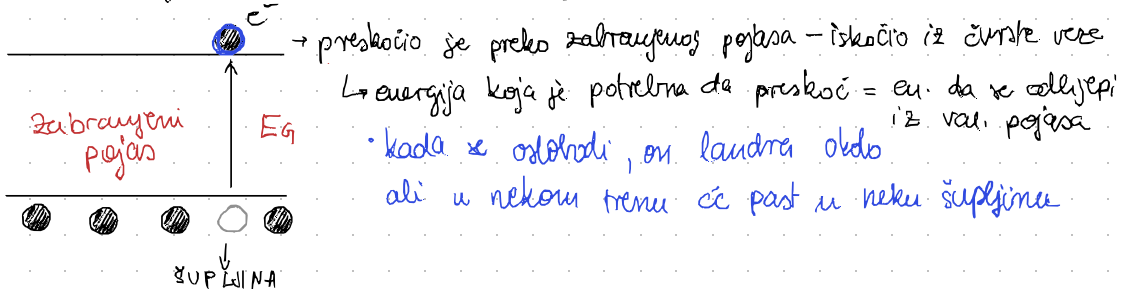 e⁻
→ preskočio je preko zabranjenog pojasa – iskočio iz čvrste veze
↳ energija koja je potrebna da preskoč = en. da se odlijepi
iz val. pojasa
zabranjeni
pojas
EG
• kada se oslobodi, on landra okolo
ali u nekom trenu će past u neku šupljinu
ŠUPLJINA